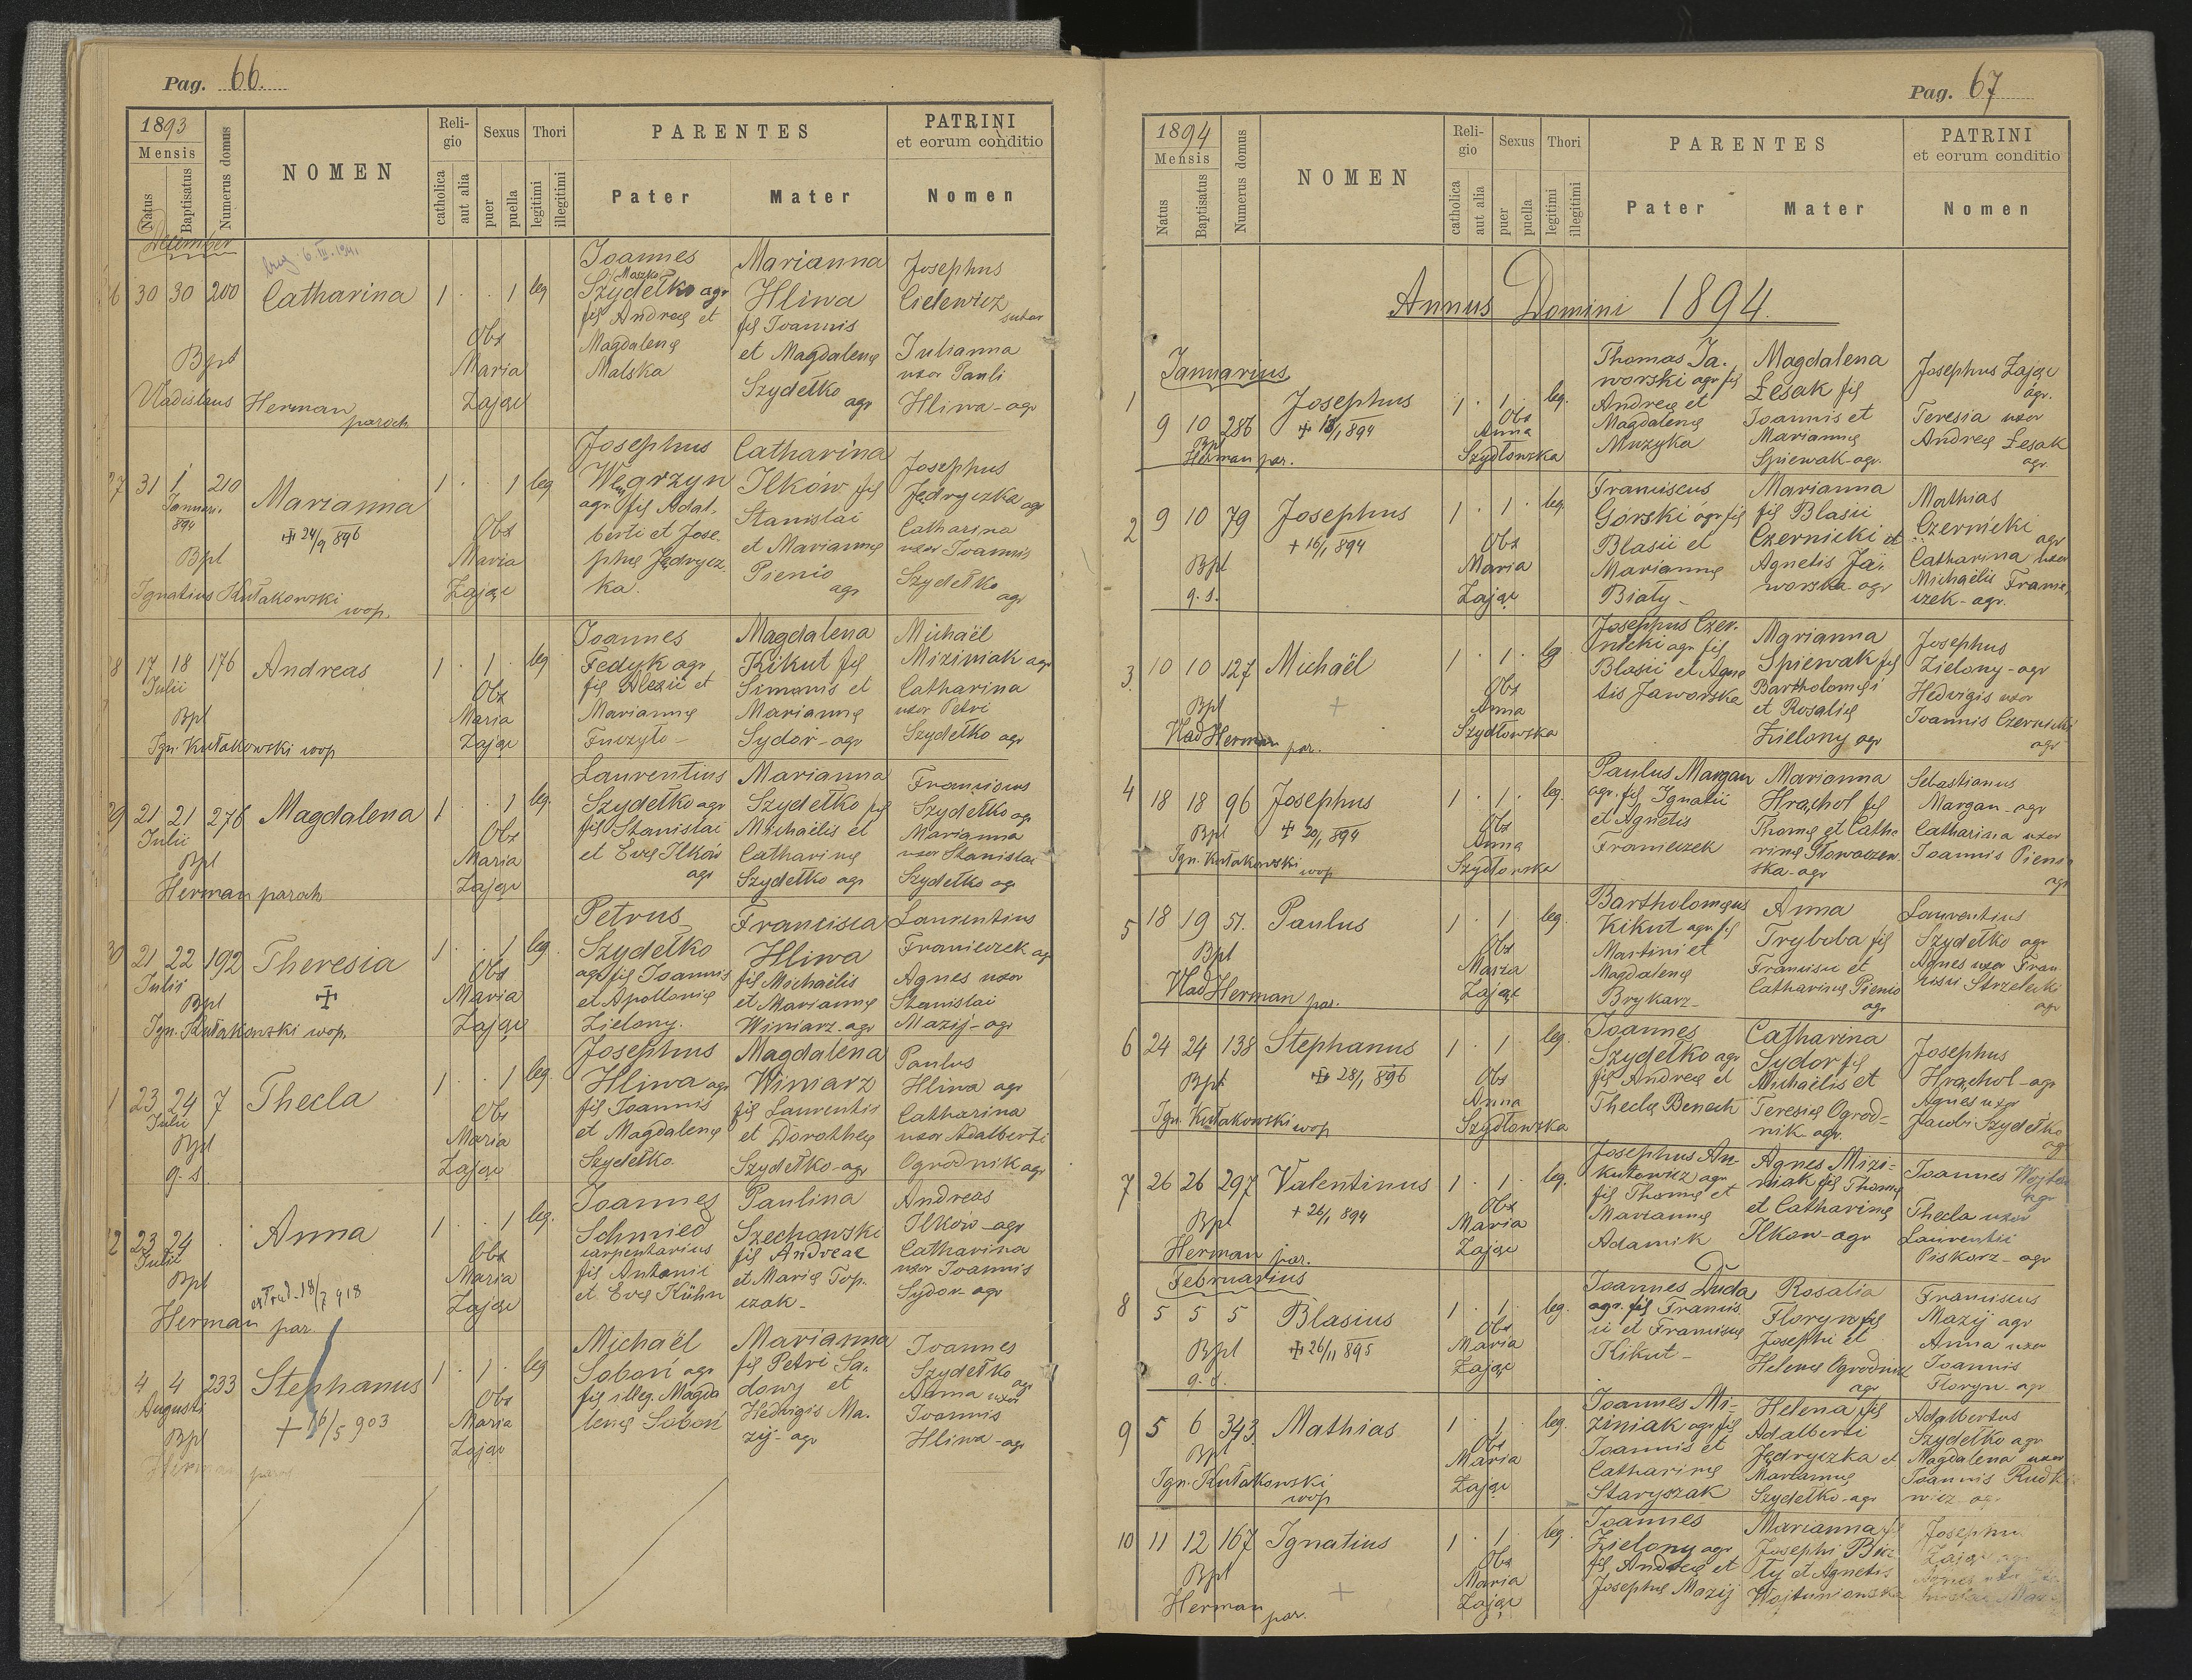 Pag. 66.
1893
Mensis
Natus
Baptisatus
Numerus domus
NOMEN
Religio
catholica
aut alia
Sexus
puer
puella
Thori
legitimi
illegitimi
PARENTES
Pater
Mater
PATRINI
et eorum conditio
Nomen
December
6. III. 1941
6 30 30 200 Catharina 1 . . 1 leg
Bpt
Vladislaus Herman
paroch
Obs
Maria
Zając
Joannes
Maszko
Szydełko agr
fil Andreę et
Magdalenę
Malska
Marianna
Hliwa
fil Joannis
et Magdalenę
Szydełko
agr
Josephus
Cielewicz
sutor
Julianna
uxor Pauli
Hliwa - agr
27 31 1 210 Marianna 1 . . 1 leg
Januari.
894
✠ 24/9 896
Bpt
Ignatius Kułakowski
wop.
Obs
Maria
Zając
Josephus
Węgrzyn
agr fil Adal-
berti et Jose-
phę Jędrycz-
ka.
Catharina
Ilków fil
Stanislai
et Mariannę
Pienio
agr
Josephus
Jędryczka agr
Catharina
uxor Joannis
Szydełko
agr
28 17 18 176 Andreas 1 . 1 . leg
Julii
Bpt
Ign. Kułakowski wop
Obs
Maria
Zając
Joannes
Fedyk agr
fil Alexii et
Mariannę
Fuczyło -
Magdalena
Kikut fil
Simonis et
Mariannę
Sydor - agr
Michaël
Miziniak agr
Catharina
uxor Petri
Szydełko agr
29 21 21 276 Magdalena 1 . . 1 leg.
Julii
Bpt
Herman paroch
Obs
Maria
Zając
Laurentius
Szydełko agr
fil Stanislai
et Evę Ilków
agr
Marianna
Szydełko fil
Michaëlis et
Catharinę
Szydełko agr
Franciscus
Szydełko agr
Marianna
uxor Stanislai
Szydełko agr
30 21 22 192 Theresia 1 . . 1 leg
Julii
✠
Bpt
Ign. Kułakowski wop.
Obs
Maria
Zając
Petrus
Szydełko
agr fil Joannis
et Apollonię
Zielony.
Francisca
Hliwa
fil Michaëlis
et Mariannę
Winiarz - agr
Laurentius
Franiczek agr
Agnes uxor
Stanislai
Mazij - agr
1 23 24 7 Thecla 1 . . 1 leg.
Julii
Bpt
q. s.
Obs
Maria
Zając
Josephus
Hliwa agr
fil Joannis
et Magdalenę
Szydełko.
Magdalena
Winiarz
fil Laurentii
et Dorotheę
Szydełko - agr
Paulus
Hliwa agr
Catharina
uxor Adalberti
Ogrodnik agr
32 23 24 . Anna 1 . . 1 leg.
Julii
Bpt
extrad. 18/7 918
Herman par.
Obs
Maria
Zając
Joannes
Schmied
carpentarius
fil Antonii
et Evę Kühn
Paulina
Szechowski
fil Andreae
et Marię Top-
czak -
Andreas
Ilków - agr
Catharina
uxor Joannis
Sydor - agr
4 4 233 Stephanus 1 . 1 . leg
Augusti
+ 16/5 903
Bpt
Herman paroch
Obs
Maria
Zając
Michaël
Soboń agr
fil illeg. Magda
lenę Soboń
Marianna
fil Petri Sa-
dowy et
Hedvigis Ma-
zij - agr
Joannes
Szydełko
agr
Anna uxor
Joannis
Hliwa - agr
Pag. 67
1894
Mensis
Natus
Baptisatus
Numerus domus
NOMEN
Religio
catholica
aut alia
Sexus
puer
puella
Thori
legitimi
illegitimi
PARENTES
Pater
Mater
PATRINI
et eorum conditio
Nomen
Annus Domini 1894.
Januarius
1 9 10 286 Josephus 1 . 1 . leg.
✠ 18/1 894
Bpt
Herman par.
Obs
Anna
Szydłowska
Thomas Ja-
worski agr fil
Andreę et
Magdalenę
Muzyka
Magdalena
Łesak fil
Joannis et
Mariannę
Spiewak - agr.
Josephus Zając
agr.
Teresia uxor
Andreę Łesak
agr
2 9 10 79 Josephus 1 . 1 . leg.
+ 16/1 894
Bpt
q. s.
Obs
Maria
Zając
Franciscus
Górski agr fil
Blasii et
Mariannę
Biały -
Marianna
fil Blasii
Czernicki et
Agnetis Ja-
worska - agr
Mathias
Czernicki
agr
Catharina uxor
Michaëlis Frani-
czek - agr.
3. 10 10 127 Michaël 1 . 1 . leg
+
Bpt
Vlad Herman par.
Obs
Anna
Szydłowska
Josephus Czer-
nicki agr fil
Blasii et Agne
tis Jaworska
Marianna
Spiewak fil
Bartholomęi
et Rosalię
Zielony agr
Josephus
Zielony - agr
Hedvigis uxor
Joannis Czernicki
agr
4 18 18 96 Josephus 1 . 1 . leg.
✠ 20/1 894
Bpt
Ign. Kułakowski wop
Obs
Anna
Szydłowska
Paulus Margan
agr. fil Ignatii
et Agnetis
Franiczek
Marianna
Hrachol fil
Thomę et Catha
rinę Słowaczew-
ska - agr
Sebastianus
Margan - agr
Catharina uxor
Joannis Pienio
agr
5 18 19 51. Paulus 1 . 1 . leg.
Bpt
Vlad Herman par.
Obs
Maria
Zając
Bartholomęus
Kikut agr fil
Martini et
Magdalenę
Brykarz -
Anna
Tryboba fil
Francisci et
Catharinę Pienio
agr
Laurentius
Szydełko agr
Agnes uxor Fran
cisci Strzelecki
agr
6 24 24 138 Stephanus 1 . 1 leg.
✠ 28/1 896
Bpt
Ign. Kułakowski wop
Obs
Anna
Szydłowska
Joannes
Szydełko agr
fil Andreę et
Theclę Benech
Catharina
Sydor fil
Michaëlis et
Teresię Ogrod-
nik - agr.
Josephus
Hrachol - agr
Agnes uxor
Jacobi Szydełko
agr
7 26 26 297 Valentinus 1 . 1 . leg.
+ 26/1 894
Bpt
Herman par.
Obs
Maria
Zając
Josephus An-
kutowicz agr
fil Thomę et
Mariannę
Adamik
Agnes Mizi-
niak fil Thomę
et Catharinę
Ilkow - agr
Joannes
agr
Thecla uxor
Laurentii
Piskorz - agr
Februarius
8 5 5 5 Blasius 1 . 1 . leg.
✠ 26/11 895
Bpt
q. s.
Obs
Maria
Zając
Joannes Duda
agr. fil Francis-
ci et Franciscę
Kikut -
Rosalia
Floryn fil
Josephi et
Helenę Ogrodnik
agr
Franciscus
Mazij agr
Anna uxor
Joannis
Floryn - agr
9 5 6 343. Mathias 1 . 1 . leg.
Bpt
Ign. Kułakowski
wop
Obs
Maria
Zając
Joannes Mi-
ziniak agr fil
Joannis et
Catharinę
Staryszak
Helena fil
Adalberti
Jędryczka et
Mariannę
Szydełko - agr
Adalbertus
Szydełko agr
Magdalena uxor
Joannis Rudk
wicz - agr
10 11 12 167 Ignatius 1 . 1 . leg.
+
Bpt
Herman par.
Obs
Maria
Zając
Joannes
Zielony agr
fil Andreę et
Josephę Mazij
Marianna fil
Josephi
et Agnetis
Wojtuniowska
Josephus
Zając agr